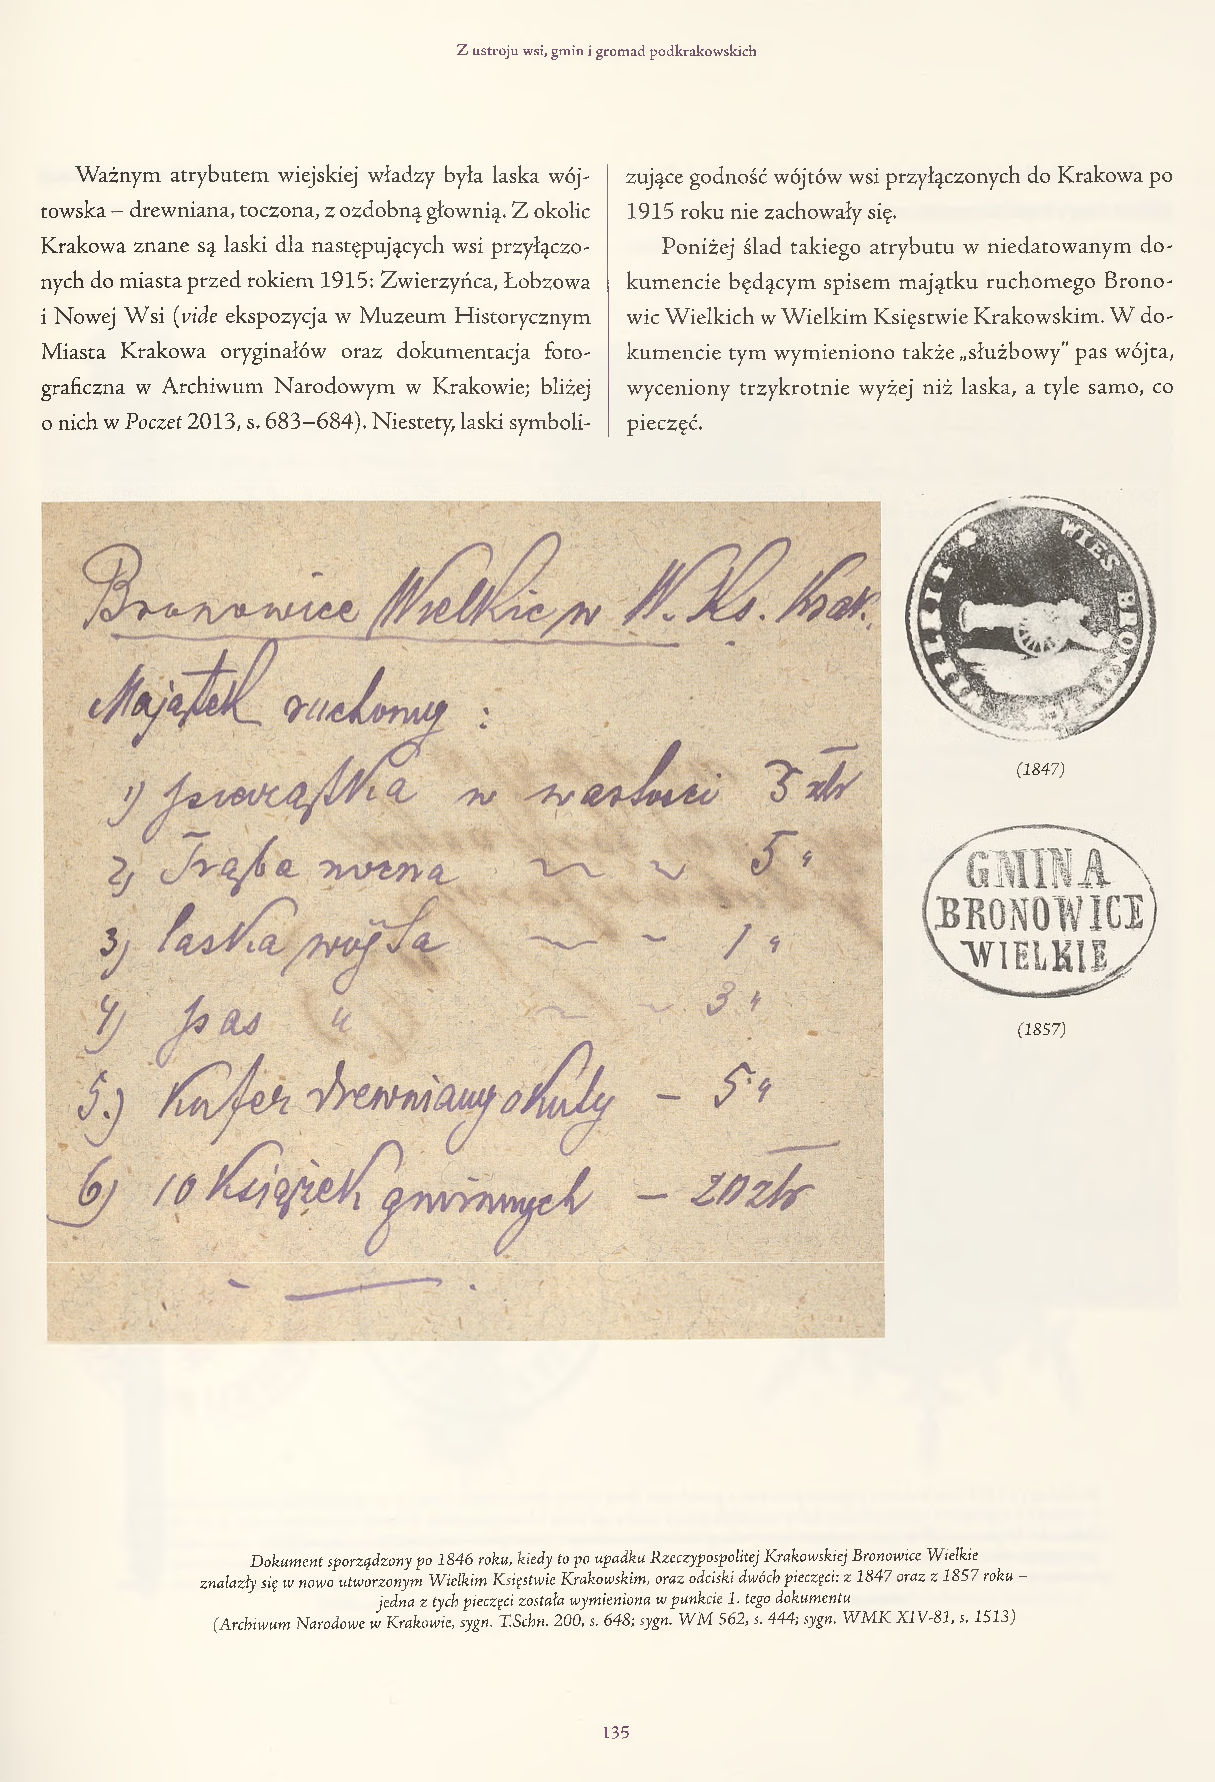 Z ustroju wsi, gmin i gromad podkrakowskich
Ważnym atrybutem wiejskiej władzy była laska wój-
towska – drewniana, toczona, z ozdobną głownią. Z okolic
Krakowa znane są laski dla następujących wsi przyłączo-
nych do miasta przed rokiem 1915: Zwierzyńca, Łobzowa
i Nowej Wsi (vide ekspozycja w Muzeum Historycznym
Miasta Krakowa oryginałów oraz dokumentacja foto-
graficzna w Archiwum Narodowym w Krakowie; bliżej
o nich w Poczet 2013, s. 683–684). Niestety, laski symboli-
zujące godność wójtów wsi przyłączonych do Krakowa po
1915 roku nie zachowały się.
Poniżej ślad takiego atrybutu w niedatowanym do-
kumencie będącym spisem majątku ruchomego Brono-
wic Wielkich w Wielkim Księstwie Krakowskim. W do-
kumencie tym wymieniono także „służbowy" pas wójta,
wyceniony trzykrotnie wyżej niż laska, a tyle samo, co
pieczęć.
Bronowice Wielkie w W. Ks. Krak.
Majątek ruchomy :
1) pieczątka w wartości 3 złr
2) Trąba nocna 5 "
3) laska wójta 1 "
4) pas " 3 "
5.) Kufer drewniany okuty – 5 "
6) 10 Książek gminnych – 20 złr
WIEŚ BRONOWICE WIELKIE
(1847)
GMINA
BRONOWICE
WIELKIE
(1857)
Dokument sporządzony po 1846 roku, kiedy to po upadku Rzeczypospolitej Krakowskiej Bronowice Wielkie
znalazły się w nowo utworzonym Wielkim Księstwie Krakowskim, oraz odciski dwóch pieczęci: z 1847 oraz z 1857 roku –
jedna z tych pieczęci została wymieniona w punkcie 1. tego dokumentu
(Archiwum Narodowe w Krakowie, sygn. T.Schn. 200, s. 648; sygn. WM 562, s. 444; sygn. WMK XIV-81, s. 1513)
135